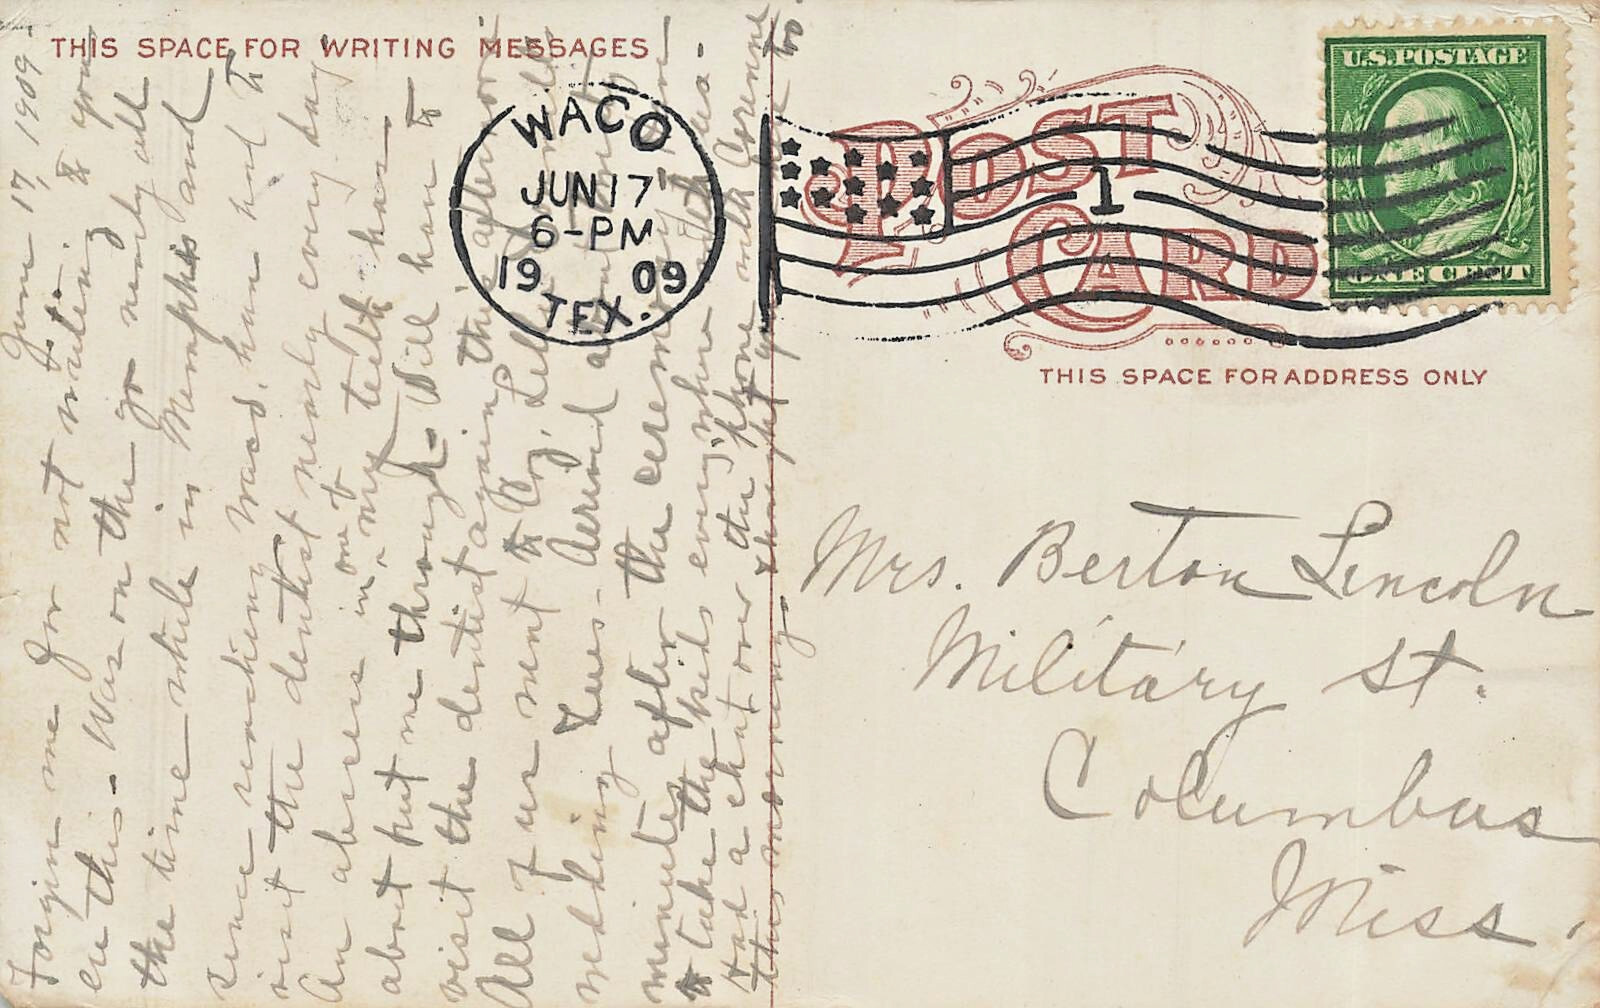 THIS SPACE FOR WRITING MESSAGES
June 17, 1909
Forgive me for not writing to you
ere this - Was on the go nearly all
the time while in Memphis and
since reaching Waco, have had to
visit the dentist nearly every day
An abscess in one of my teeth has
about put me through - Will have to
visit the dentist again this afternoon
All of us went to Coz.
wedding Tues - Arrived about
minutes after the ceremony
to take the kids everywhere
Had a chat over the phone with Corinne
this morning thought you too
WACO
JUN 17
6-PM
1909
TEX.
1
POST
CARD
U.S. POSTAGE
ONE CENT
THIS SPACE FOR ADDRESS ONLY
Mrs. Berton Lincoln
Military St.
Columbus
Miss.